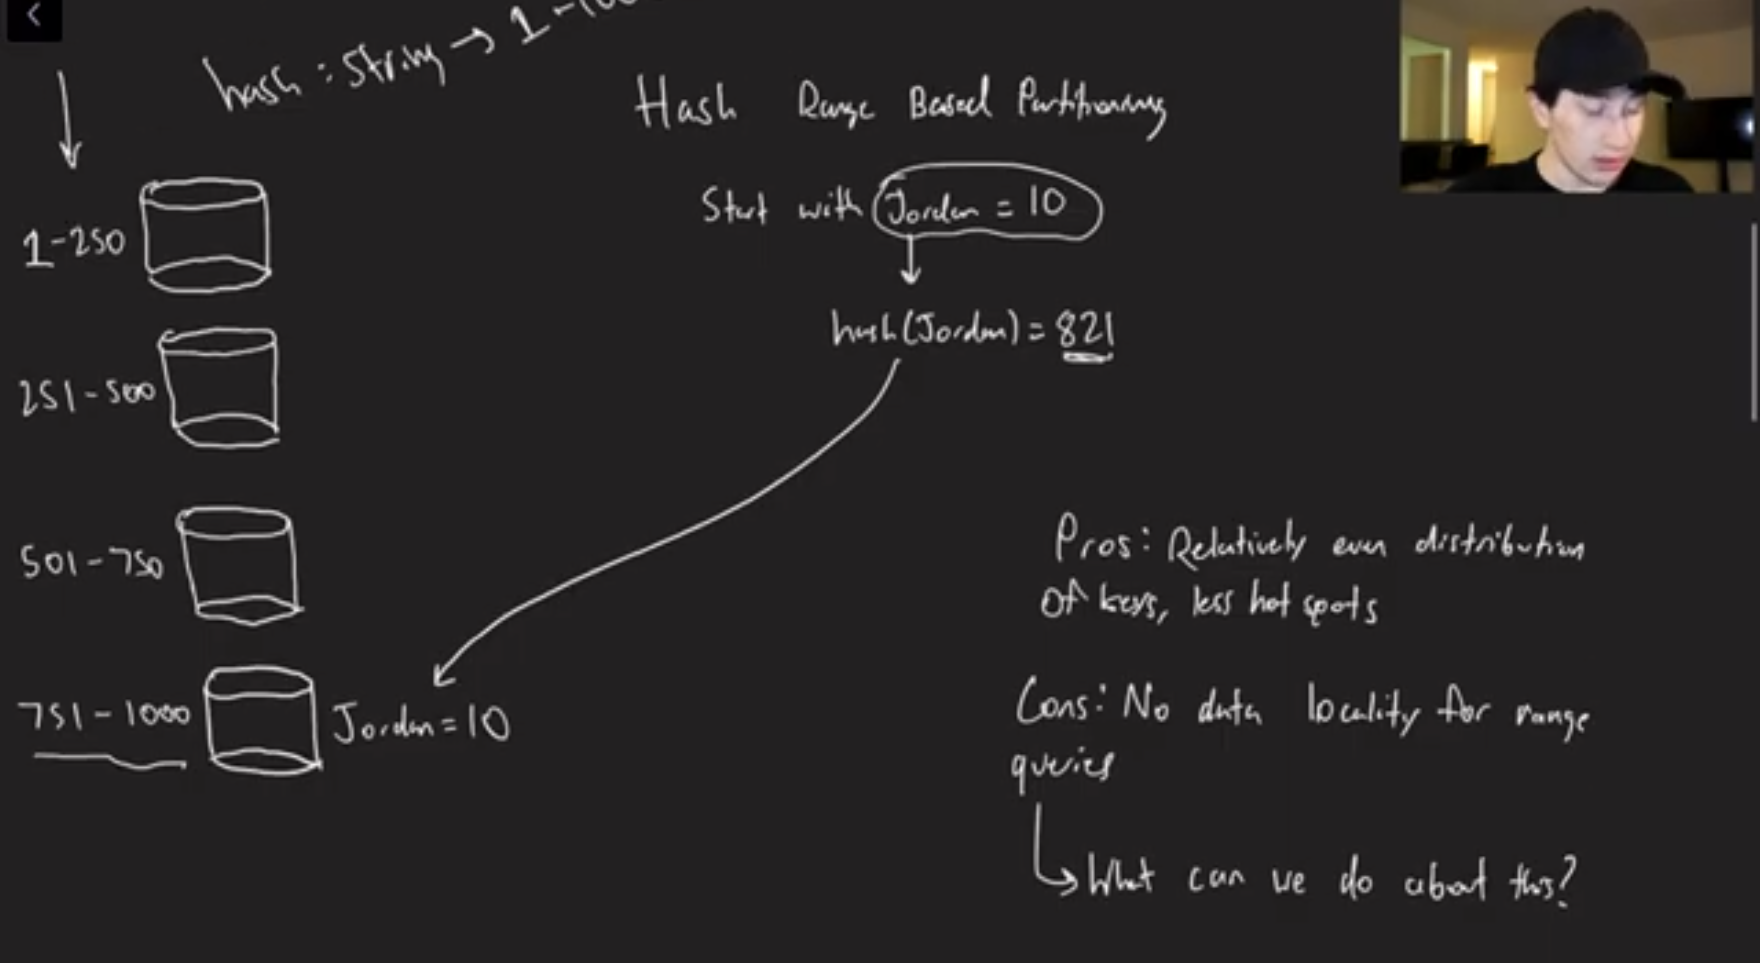 hash : string → 1 -
Hash Range Based Partitioning
Start with Jordan = 10
hash(Jordan) = 821
1-250
251-500
501-750
751-1000
Jordan = 10
Pros: Relatively even distribution
of keys, less hot spots
Cons: No data locality for range
queries
What can we do about this?